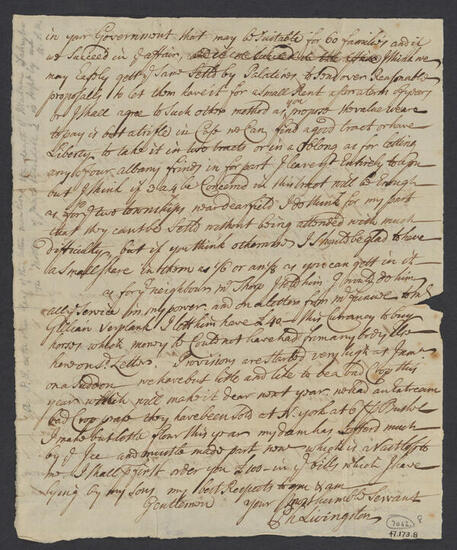 in your Government that may be Suitable for 60 families and if
we Succeed in ye affair, I think we
may Easyly gett ye Same Setled by Palatines to Send over Reasonable
proposalls to let them have it for a Small Rent after a term of years
or I shall agree to Such other method as you propose the value we are
to pay is but a trifle in Case we Can find a good tract or have
Liberty to take it in two tracts or in a Solong as for letting
any of our albany frinds in for part I leave yt Entirely to you
but I think if 3 a 4 be Concerned in this it will be Enough
as for ye two townships near dearfield I do think for my part
that they cant be Setled without being attended with much
difficulty, but if you think otherwise I Should be glad to have
a Small Share in them as 1/6 or an 1/8 as you can gett in it
as for ye neighbour Mr Sharp I told him I would do him
all ye Service in my power, and on a letter from Mr
Gulian Verplank I lett him have £40 this Currancy to buy
horses which money he Could not have had from any body Else
here on sd Letter. Provisions are Started very high at Jam
on a Sudden we have but little and like to be a bad Crop this
year which will make it dear next year, we had an Extream
bad Crop pease they have been Sold at N. York at 6 / Bushel
I make but little flour this year my dam has Sufferd much
by ye Ice and must be made part new which is a Vast loss to
me I shall p first order you £100 in ye bills which I have
lying by my sons my best Respects to me & am
Gentlemen your most humble Servant
Ph Livingston
7042
47.173.8